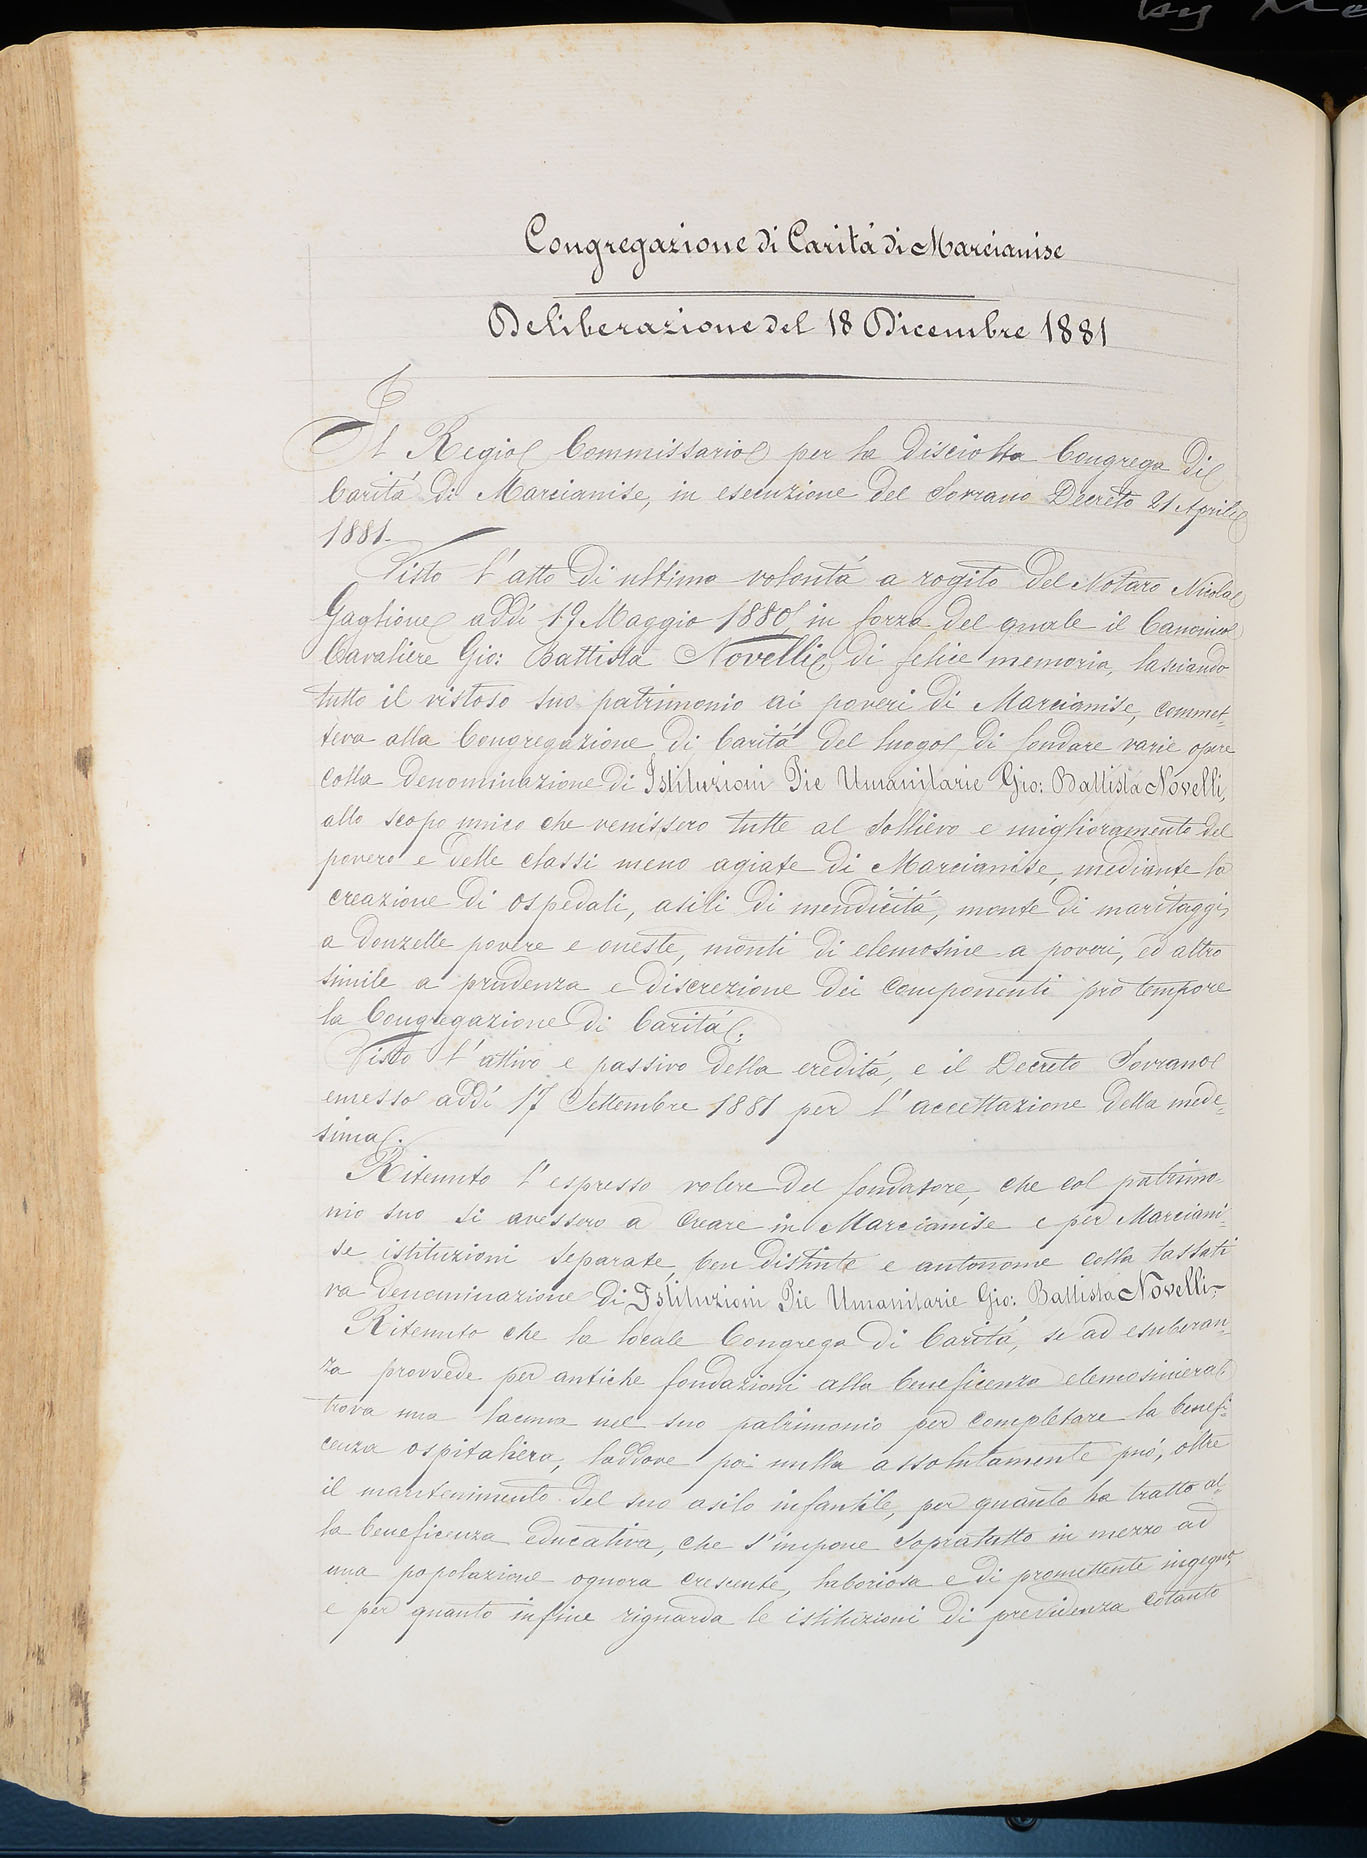 Congregazione di Caritá di Marcianise
Deliberazione del 18 Dicembre 1881
Il Regio Commissario per la disciolta Congrega di
Caritá di Marcianise, in esecuzione del Sovrano Decreto 21 Aprile
1881.
Visto l'atto di ultima volontá a rogito del Notaro Nicola
Gaglione addí 19 Maggio 1880, in forza del quale il Canonico
Cavaliere Gio: Battista Novelli, di felice memoria, lasciando
tutto il vistoso suo patrimonio ai poveri di Marcianise, commet-
teva alla Congregazione di Caritá del luogo, di fondare varie opere
colla denominazione di Istituzioni Pie Umanitarie Gio: Battista Novelli,
allo scopo unico che venissero tutte al sollievo e miglioramento del
povero e delle classi meno agiate di Marcianise, mediante la
creazione di ospedali, asili di mendicitá, monte di maritaggi,
a donzelle povere e oneste, monti di elemosine a poveri, ed altro
simile a prudenza e discrezione dei componenti pro tempore
la Congregazione di Caritá;
Visto l'attivo e passivo della ereditá, e il Decreto Sovrano
emesso addí 17 Settembre 1881 per l'accettazione della mede-
sima.
Ritenuto l'espresso volere del fondatore, che col patrimo-
nio suo si avessero a creare in Marcianise e per Marciani-
se istituzioni separate, ben distinte e autonome colla tassati
va denominazione di Istituzioni Pie Umanitarie Gio: Battista Novelli-
Ritenuto che la locale Congrega di Caritá, se ad esuberan-
za provvede per antiche fondazioni alla beneficenza elemosiniera,
trova una lacuna nel suo patrimonio per completare la benefi-
cenza ospitaliera, laddove poi nulla assolutamente puó, oltre
il mantenimento del suo asilo infantile, per quanto ha tratto al-
la beneficenza educativa, che s'impone sopratutto in mezzo ad
una popolazione ognora crescente, laboriosa e di promettente ingegno,
e per quanto infine riguarda le istituzioni di previdenza cotanto